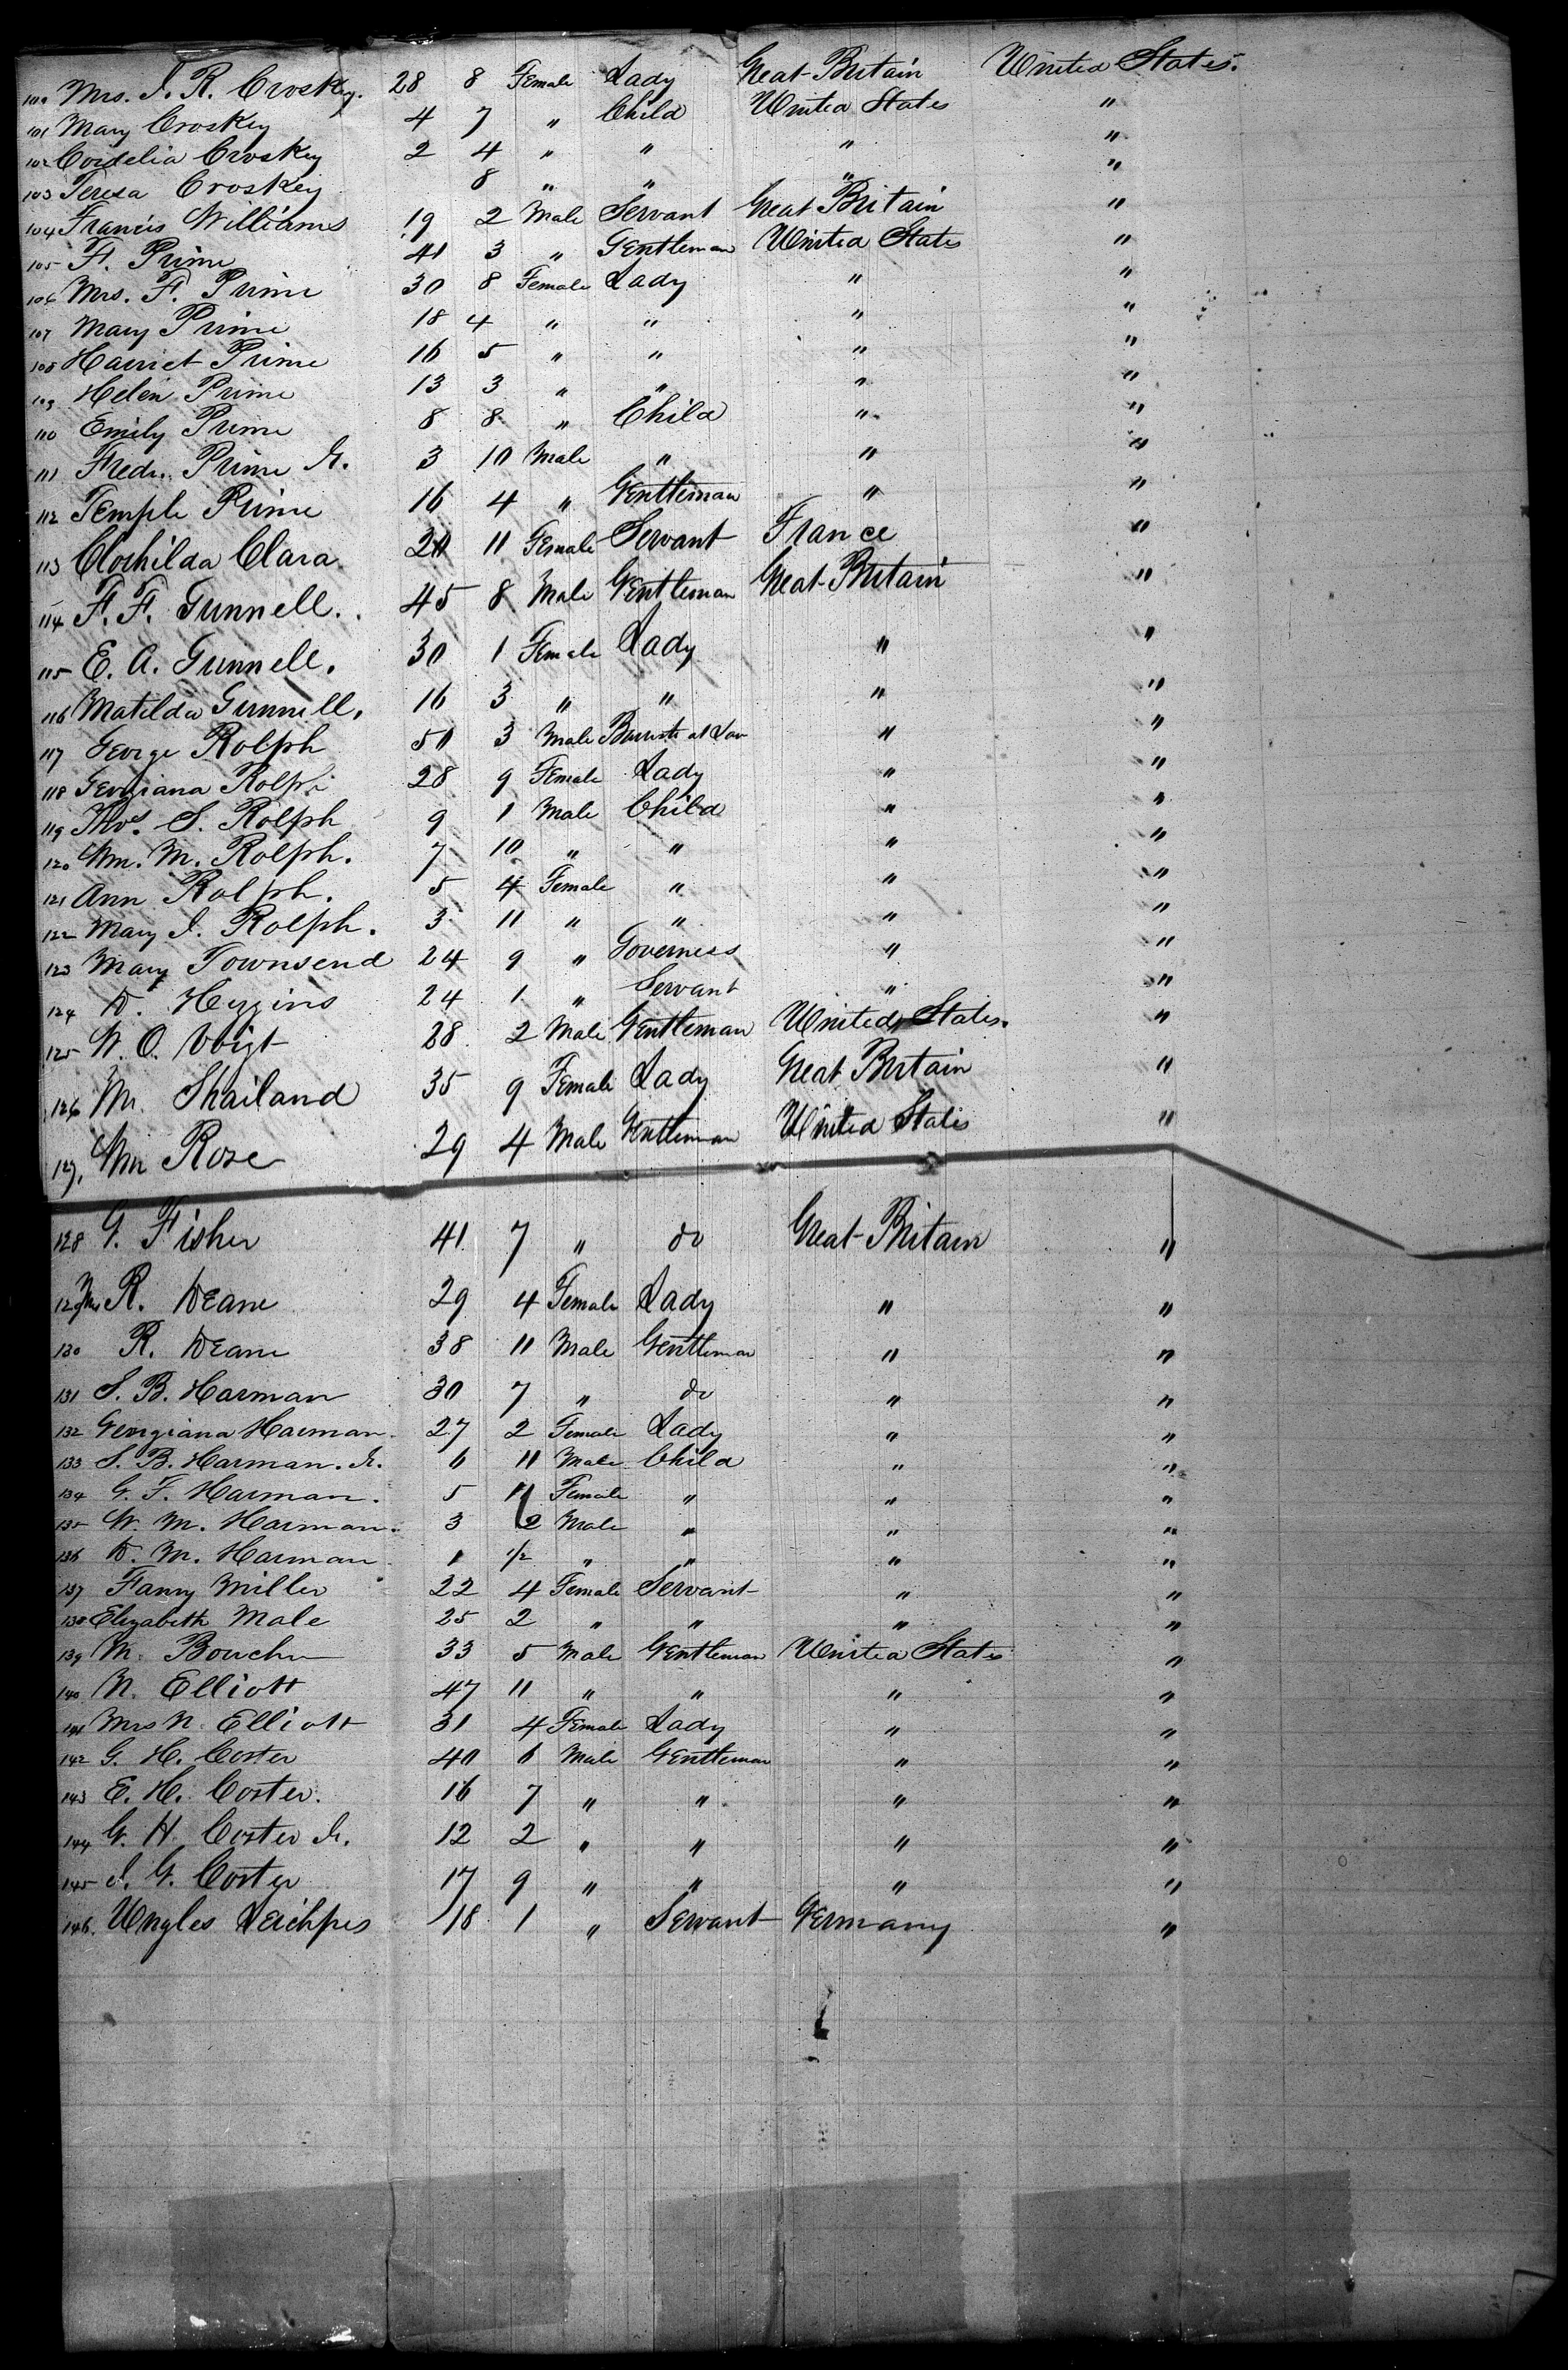 100 Mrs. J. R. Croskey. 28 8 Female Lady Great Britain United States.
101 Mary Croskey 4 7 " Child United States "
102 Cordelia Croskey 2 4 " " " "
103 Teresa Croskey 8 " " " "
104 Francis Williams 19 2 Male Servant Great Britain "
105 F. Prime 41 3 " Gentleman United States "
106 Mrs. F. Prime 30 8 Female Lady " "
107 Mary Prime 18 4 " " " "
108 Harriet Prime 16 5 " " " "
109 Helen Prime 13 3 " " " "
110 Emily Prime 8 8 " Child " "
111 Fredr. Prime Jr. 3 10 Male " " "
112 Temple Prime 16 4 " Gentleman " "
113 Clothilda Clara 20 11 Female Servant France "
114 F. F. Gunnell. 45 8 Male Gentleman Great Britain "
115 E. A. Gunnell. 30 1 Female Lady " "
116 Matilda Gunnell. 16 3 " " " "
117 George Rolph 50 3 Male Barrister at Law " "
118 Georgiana Rolph 28 9 Female Lady " "
119 Thos. S. Rolph 9 1 Male Child " "
120 Wm. M. Rolph. 7 10 " " " "
121 Ann Rolph. 5 4 Female " " "
122 Mary J. Rolph. 3 11 " " " "
123 Mary Townsend 24 9 " Governess " "
124 D. Higgins 24 1 " Servant " "
125 W. O. Voigt 28 2 Male Gentleman United States. "
126 M. Shailand 35 9 Female Lady Great Britain "
127. Wm Rose 29 4 Male Gentleman United States "
128 G. Fisher 41 7 " do Great Britain "
129 Mrs R. Deane 29 4 Female Lady " "
130 R. Deane 38 11 Male Gentleman " "
131 S. B. Harman 30 7 " do " "
132 Georgiana Harman. 27 2 Female Lady " "
133 S. B. Harman. Jr. 6 11 Male Child " "
134 G. F. Harman. 5 Female " " "
135 W. M. Harman. 3 2 Male " " "
136 D. M. Harman 1 1/2 " " " "
137 Fanny Miller 22 4 Female Servant " "
138 Elizabeth Male 25 2 " " " "
139 M. Boucher 33 5 Male Gentleman United States "
140 N. Elliott 47 11 " " " "
141 Mrs N. Elliott 31 4 Female Lady " "
142 G. H. Coster 40 6 Male Gentleman " "
143 E. H. Coster. 16 7 " " " "
144 G. H. Coster Jr. 12 2 " " " "
145 J. G. Coster 17 9 " " " "
146. 18 1 " Servant Germany "